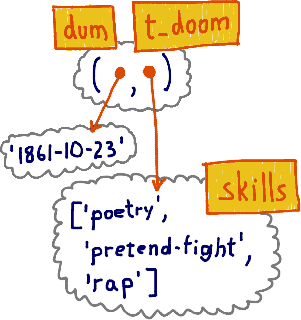 dum t_doom
( , )
'1861-10-23'
skills
['poetry',
'pretend-fight',
'rap']